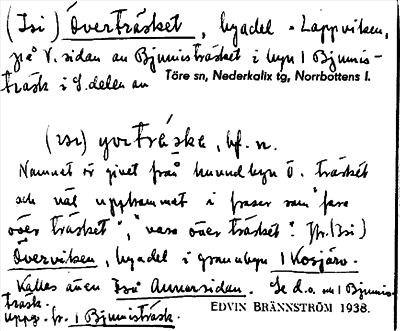 (Isi) Överträsket, byadel = Lappviken,
på V. sidan av Bjumisträsket i byn 1 Bjumis-
träsk i S. delen av Töre sn, Nederkalix tg, Norrbottens l.
(ısi) bf. n.
Namnet är givet från huvudbyn ö. träsket
och väl uppkommet i fraser som "fara
över träsket", "vara över träsket". Jfr. (Isi)
Överviken, byadel i grannbyn 1 Kosjärv.
Kallas även Isi Annersidan. Se d.o. av 1 Bjumis-
träsk.
uppg. fr. 1 Bjumisträsk. EDVIN BRÄNNSTRÖM 1938.